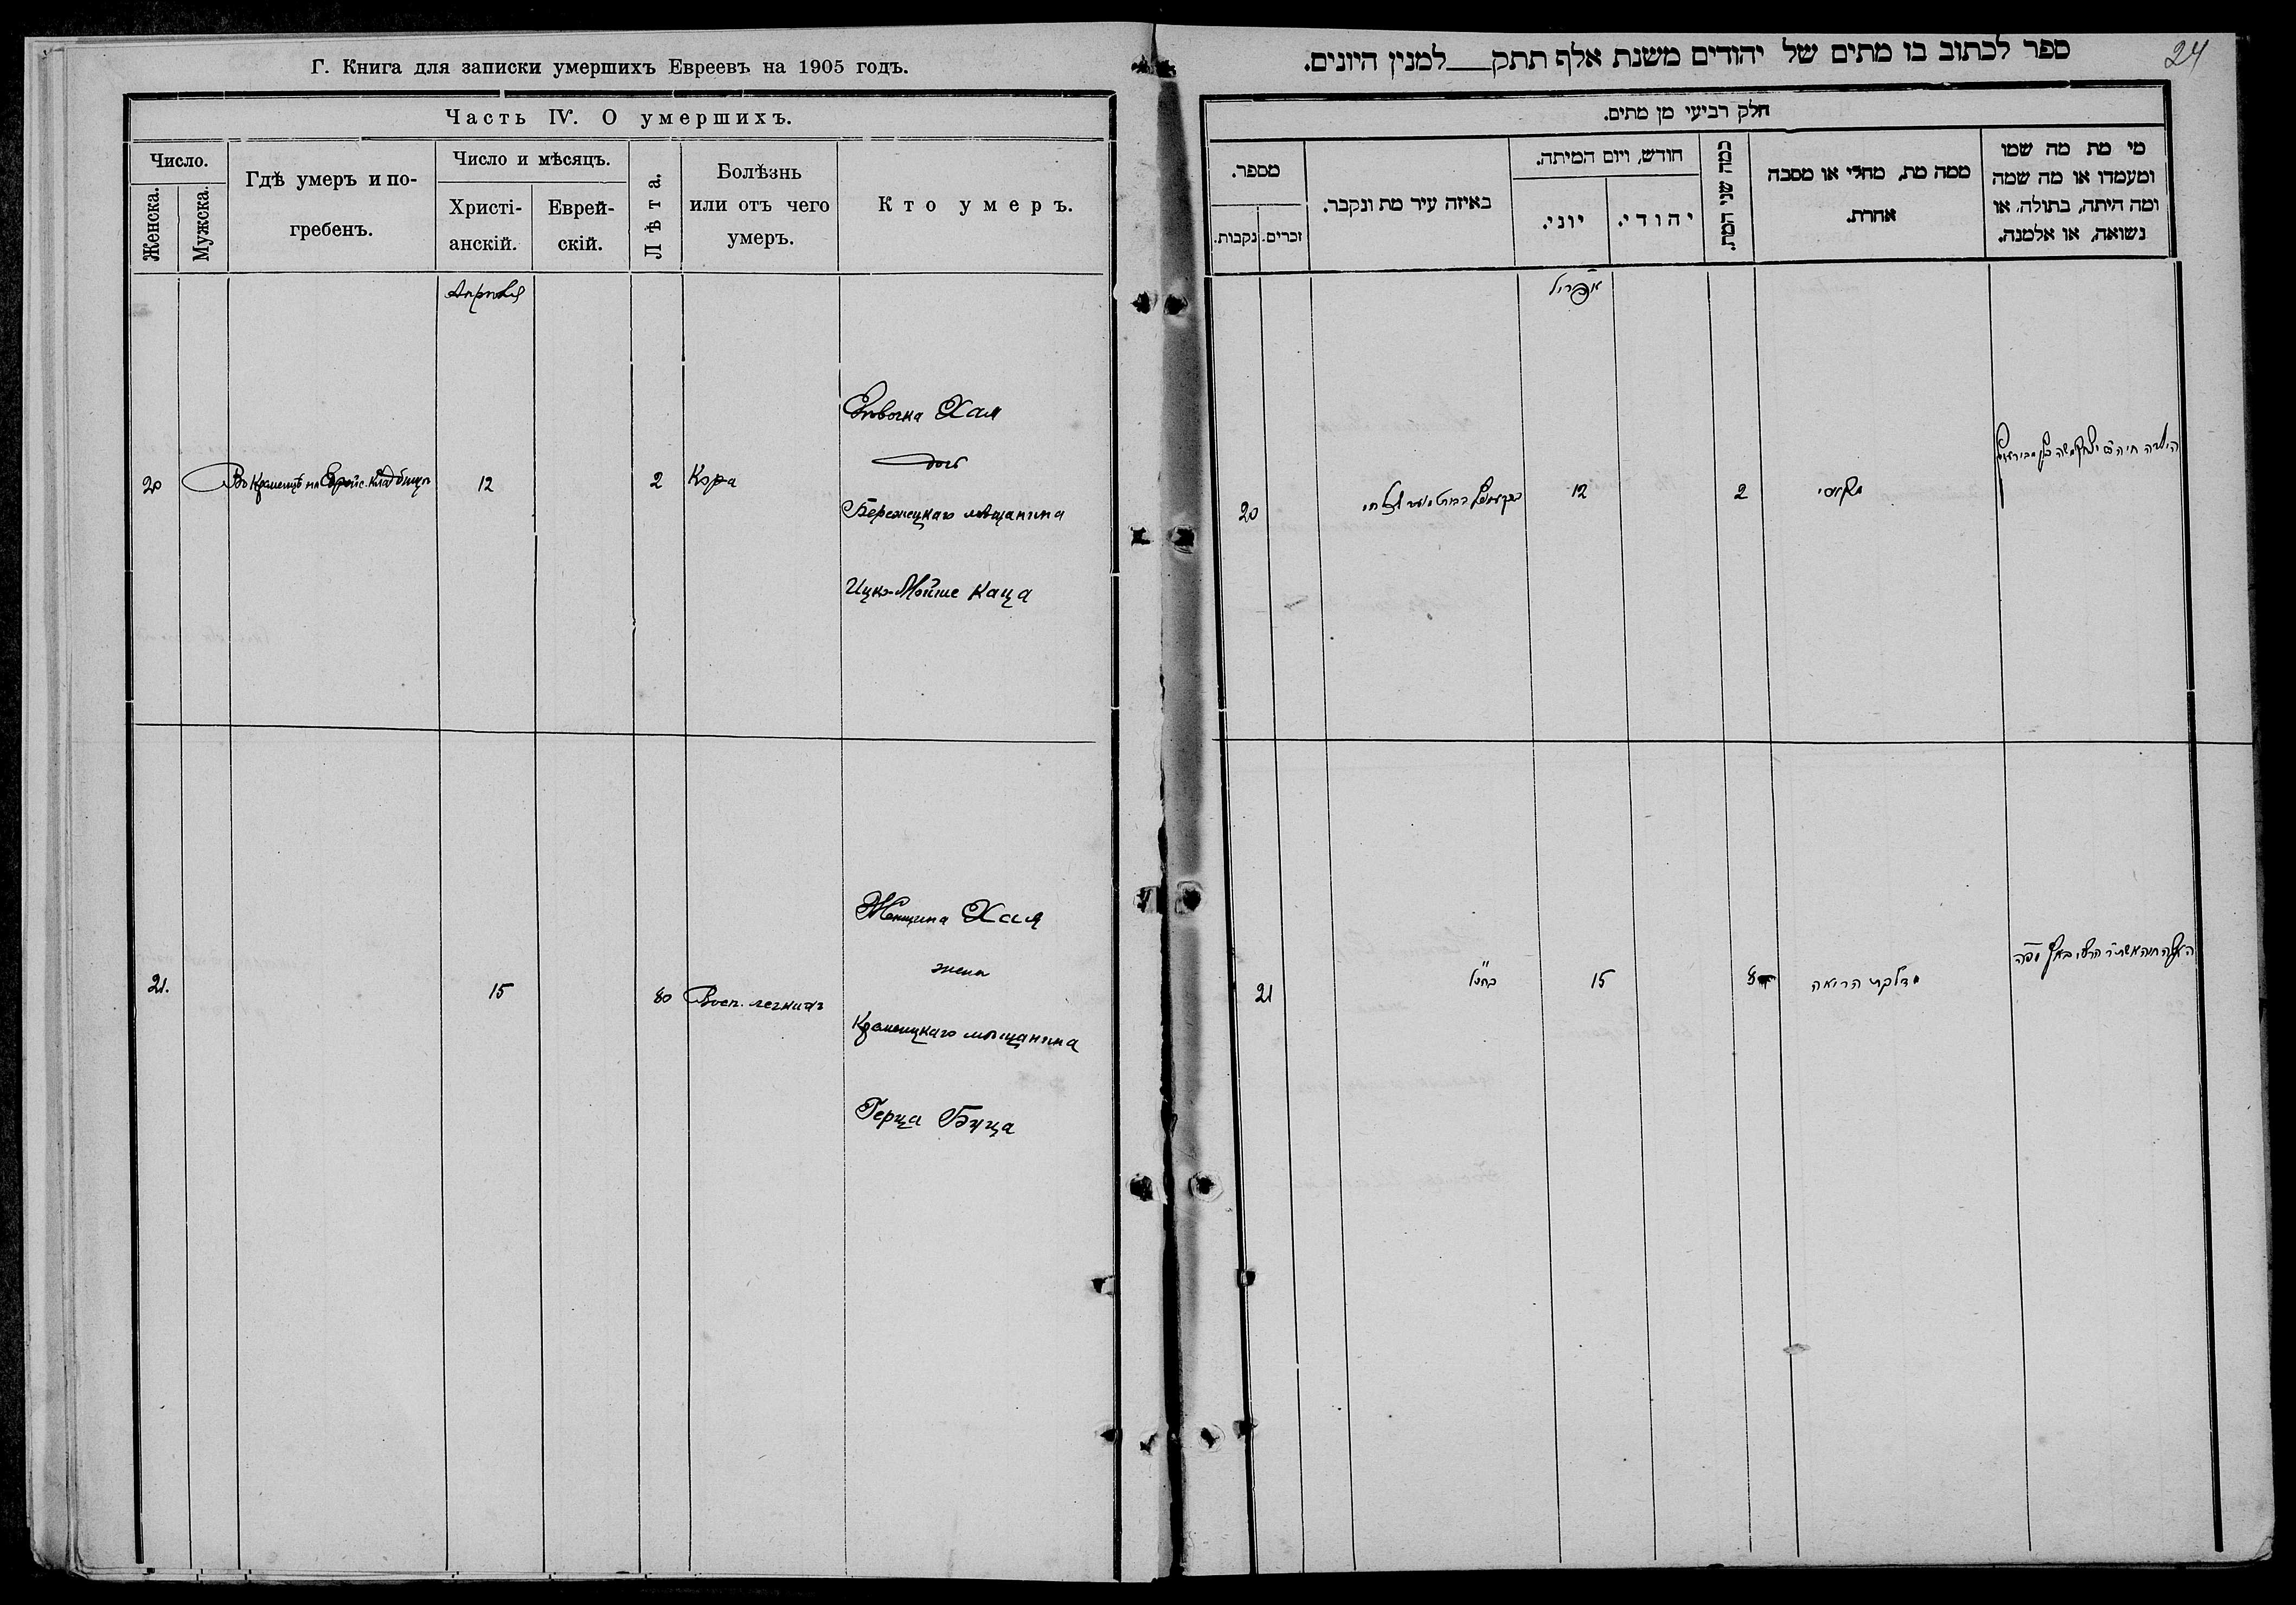 Г. Книга для записки умершихъ Евреевъ на 1905 годъ.
Часть IV. О умершихъ.
Число.
Женска.
Мужска.
Гдѣ умеръ и по-
гребенъ.
Число и мѣсяцъ.
Христі-
анскій.
Еврей-
скій.
Лѣта.
Болѣзнь
или отъ чего
умеръ.
Кто умеръ.
Апрѣль
20
Въ Кременцѣ на Еврейс. кладбищѣ
12
2
Корь
Дѣвочка Хая
дочь
Бережецкаго мѣщанина
Ицко-Мойше Каца
21.
15
80
Восп. легкихъ
Женщина Хая
жена
Кременецкаго мѣщанина
Герца Буца
24
ספר לכתוב בו מתים של יהודים משנת אלף תתק למנין היונים.
חלק רביעי מן מתים.
מספר.
נקבות.
זכרים.
באיזה עיר מת ונקבר.
חודש, ויום המיתה.
יוני.
יהודי.
כמה שני המת.
ממה מת, מחלי או מסבה
אחרת.
מי מת מה שמו
ומעמדו או מה שמה
ומה היתה, בתולה, או
נשואה, או אלמנה.
אפריל
20
12
2
הילדה חיה
21
כנ"ל
15
80
מדלקת הריאה